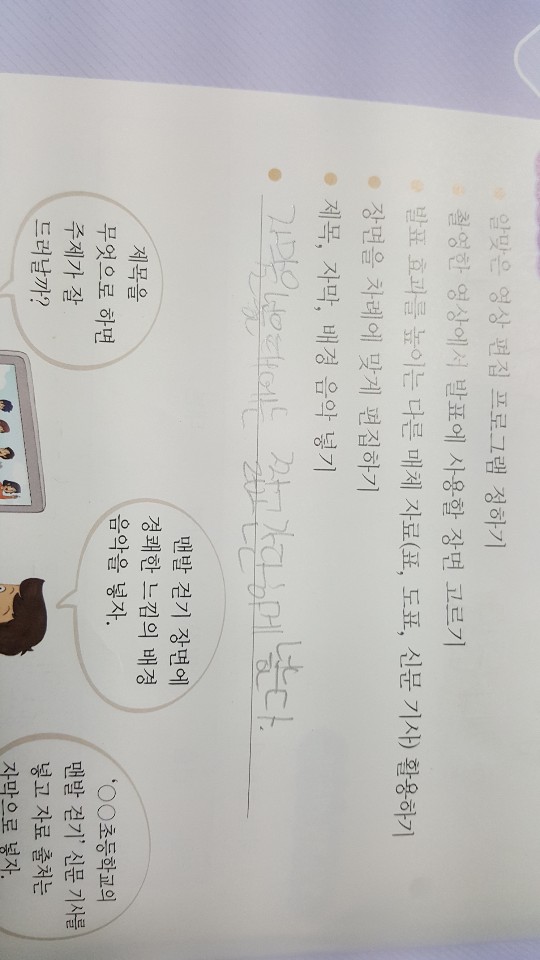 알맞은 영상 편집 프로그램 정하기
촬영한 영상에서 발표에 사용할 장면 고르기
발표 효과를 높이는 다른 매체 자료(표, 도표, 신문 기사) 활용하기
장면을 차례에 맞게 편집하기
제목, 자막, 배경 음악 넣기
자막을 넣을 때에는 작고 간단하게 넣는다.
제목을
무엇으로 하면
주제가 잘
드러날까?
맨발 걷기 장면에
경쾌한 느낌의 배경
음악을 넣자.
‘○○초등학교의
맨발 걷기’ 신문 기사를
넣고 자료 출처는
자막으로 넣자.